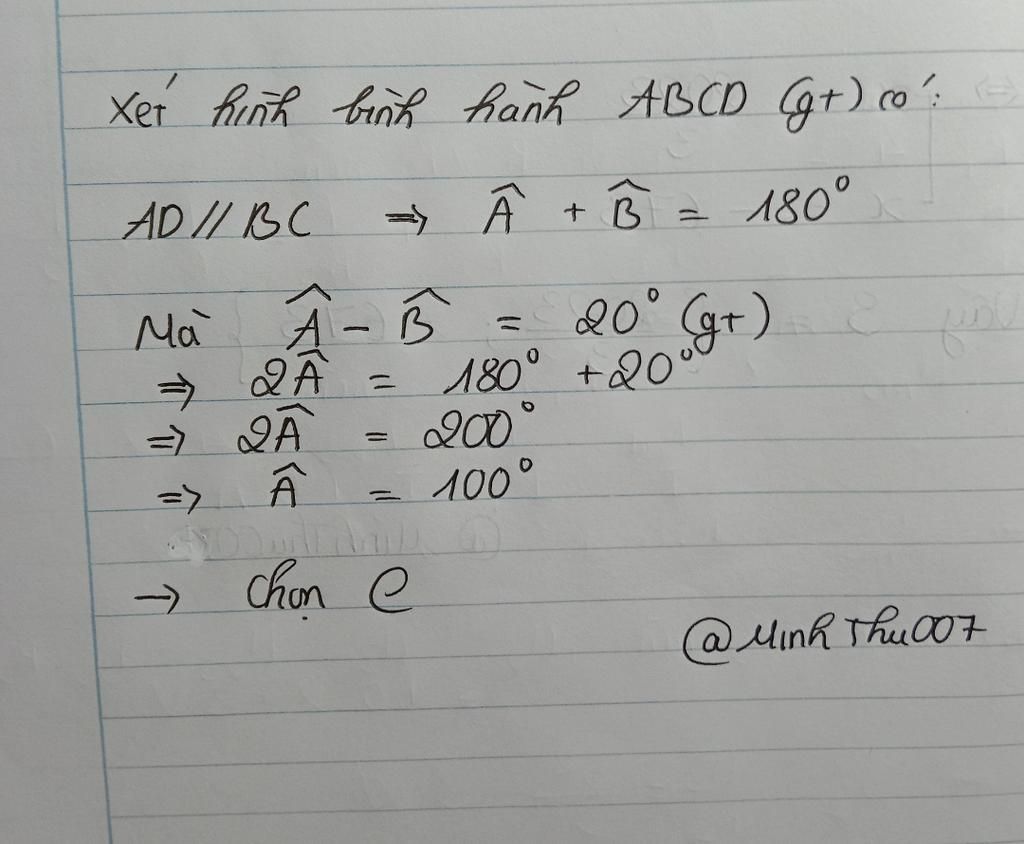 Xét hình bình hành ABCD (gt) có:
AD // BC ⇒ Â + B̂ = 180°
Mà Â - B̂ = 20° (gt)
⇒ 2Â = 180° + 20°
⇒ 2Â = 200°
⇒ Â = 100°
→ Chọn C
@MinhThu007